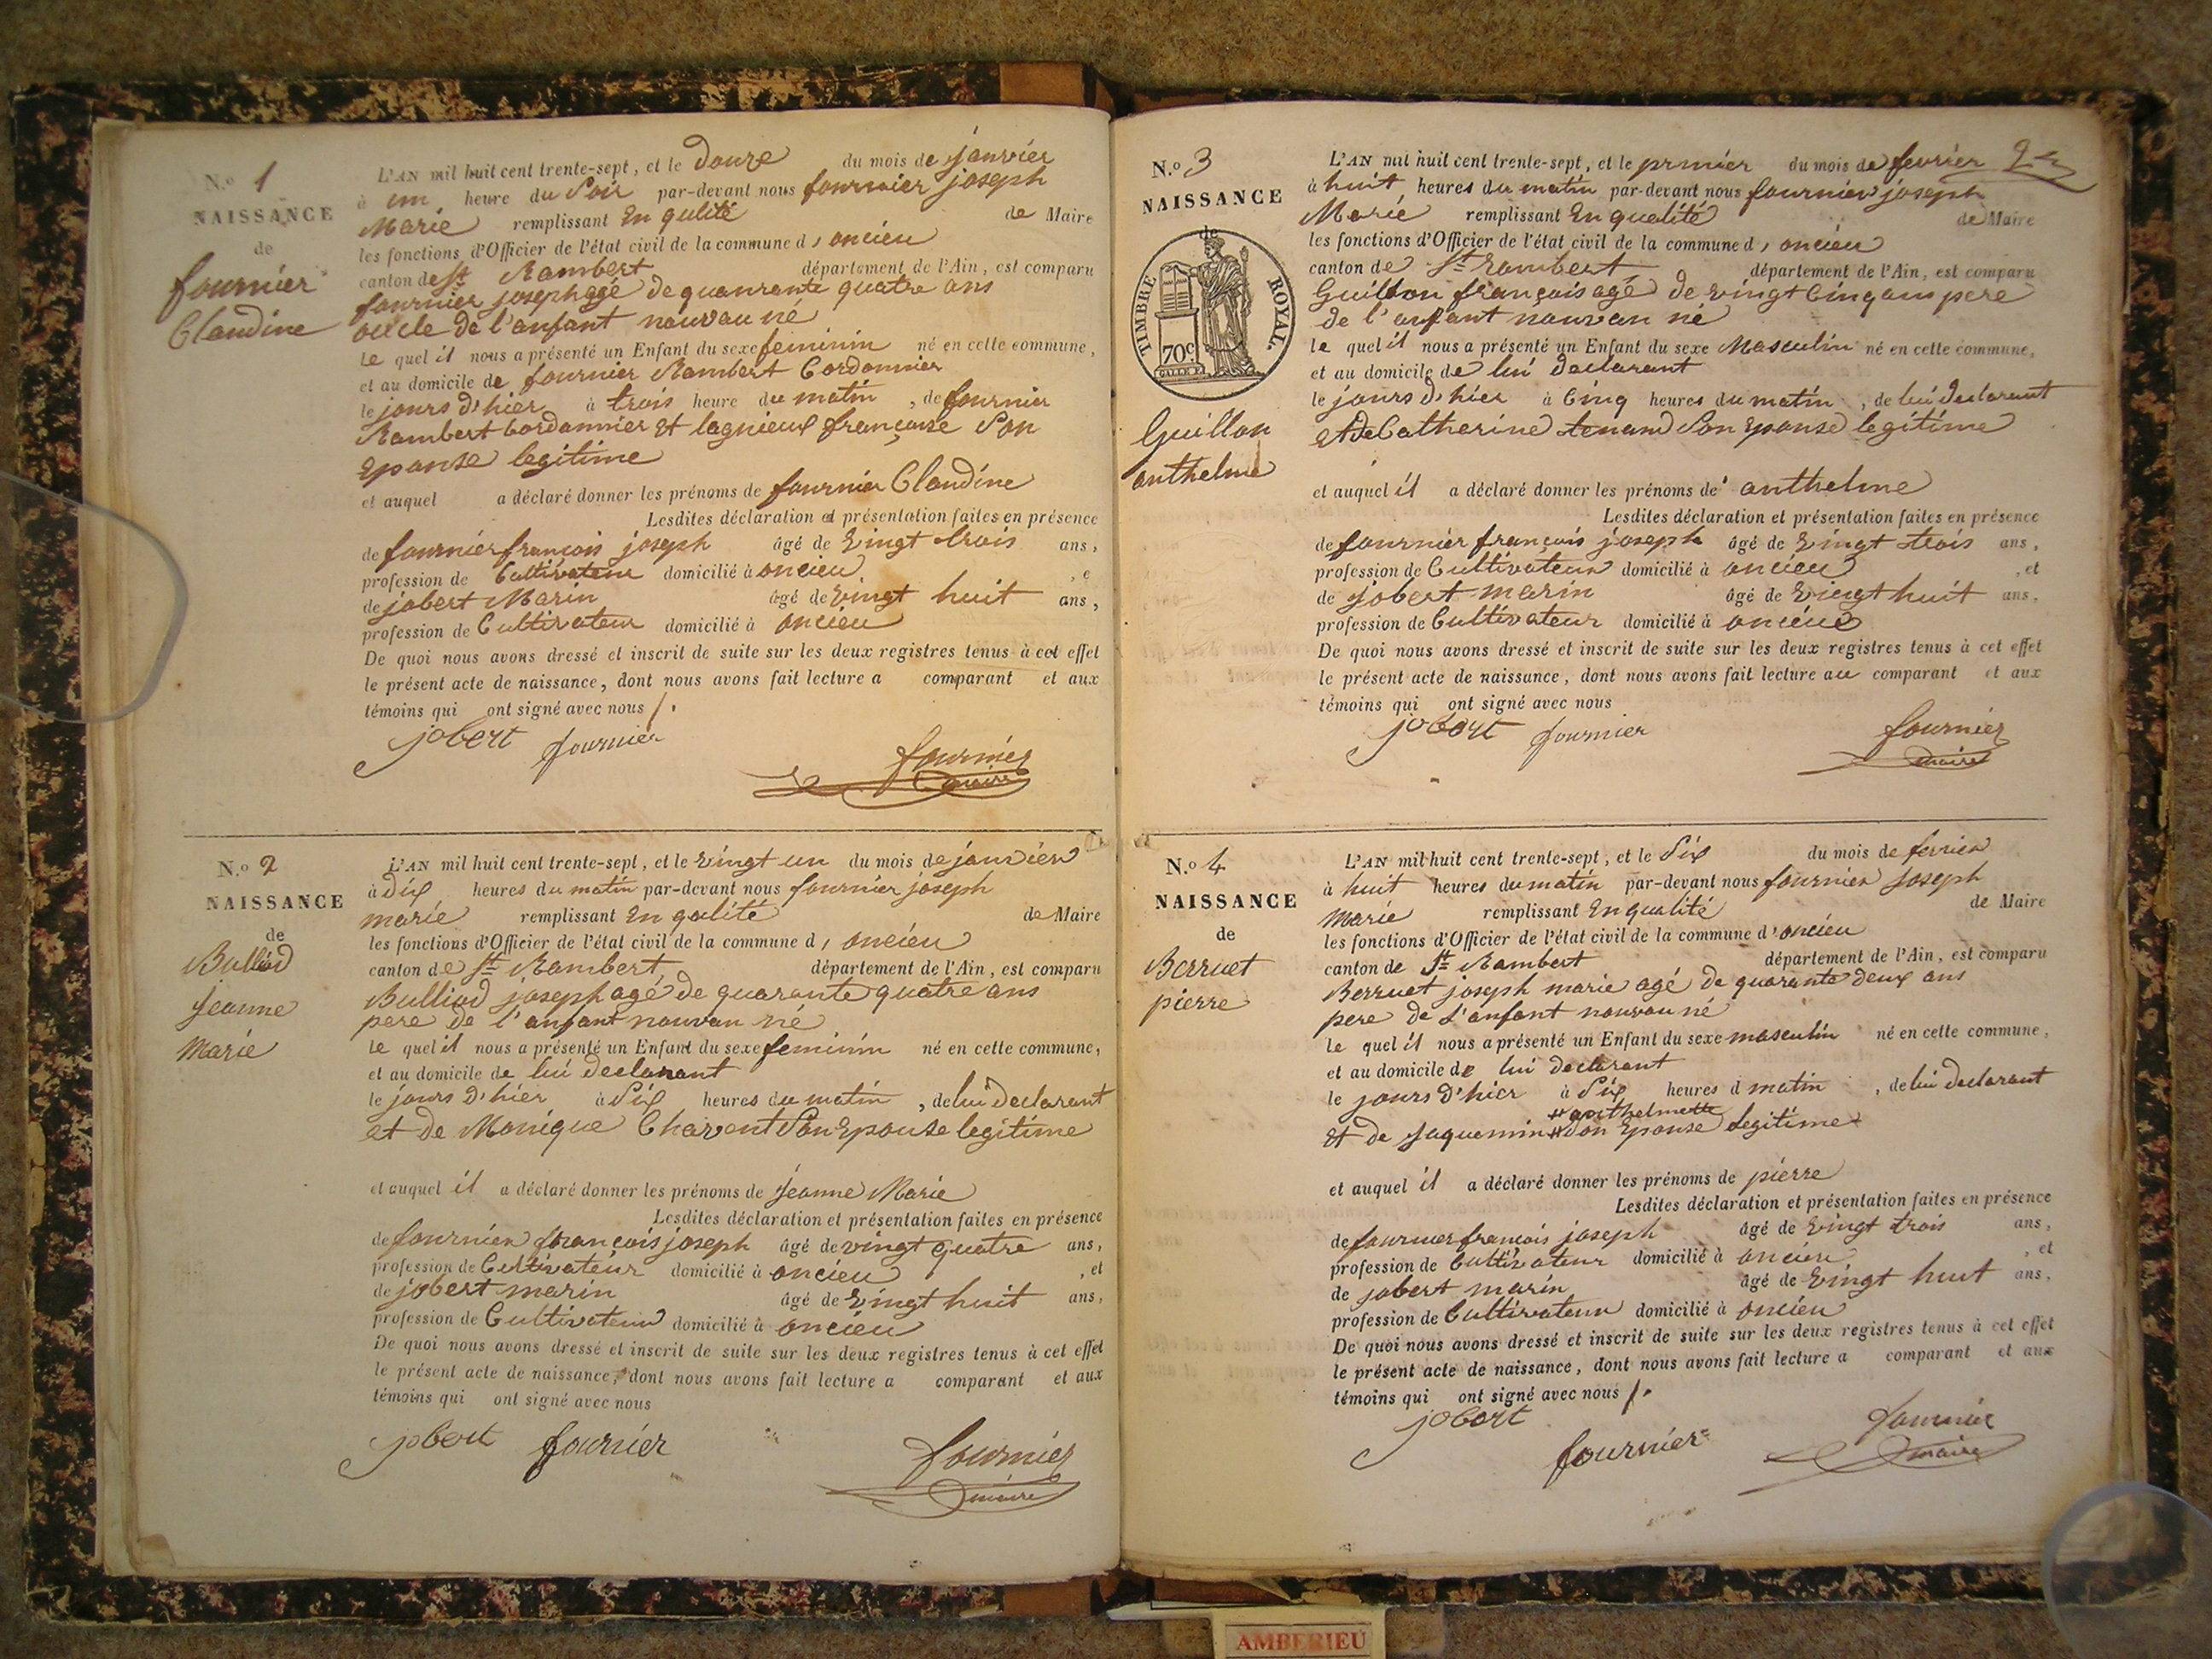 N.o 1
NAISSANCE
de
fournier
Claudine
L'AN mil huit cent trente-sept, et le douze du mois de janvier
à un heure du Soir par-devant nous fournier joseph
Marie remplissant En qulité de Maire
les fonctions d'Officier de l'état civil de la commune d, oncieu
canton de St Rambert département de l'Ain, est comparu
fournier joseph agé de quanrante quatre ans
oncle de l'anfant nouvau né
Le quel il nous a présenté un Enfant du sexe feminin né en cette commune,
et au domicile de fournier Rambert Cordonnier
le jours d'hier à trois heure du matin, de fournier
Rambert Cordonnier Et lagnieux françoise Son
Epouse legitime
et auquel a déclaré donner les prénoms de fournier Claudine
Lesdites déclaration et présentation faites en présence
de fournier françois joseph âgé de vingt trois ans,
profession de Cultivateur domicilié à oncieu, e
de jobert Marin âgé de vingt huit ans,
profession de Cultivateur domicilié à oncieu
De quoi nous avons dressé et inscrit de suite sur les deux registres tenus à cet effet
le présent acte de naissance, dont nous avons fait lecture a comparant et aux
témoins qui ont signé avec nous /.
jobert fournier fournier
maire
N.o 2
NAISSANCE
de
Bulliod
Jeanne
Marie
L'AN mil huit cent trente-sept, et le vingt un du mois de janvier
à dix heures du matin par-devant nous fournier joseph
marie remplissant En qulité de Maire
les fonctions d'Officier de l'état civil de la commune d, oncieu
canton de St Rambert département de l'Ain, est comparu
Bulliod joseph agé de quarante quatre ans
pere de l'anfant nouvau né
Le quel il nous a présenté un Enfant du sexe feminin né en cette commune,
et au domicile de lui declarant
le jours d'hier à Six heures du matin, de lui declarant
et de Monique Charvent Son Epouse legitime
et auquel il a déclaré donner les prénoms de Jeanne Marie
Lesdites déclaration et présentation faites en présence
de fournier françois joseph âgé de vingt quatre ans,
profession de Cultivateur domicilié à oncieu, et
de jobert marin âgé de vingt huit ans,
profession de Cultivateur domicilié à oncieu
De quoi nous avons dressé et inscrit de suite sur les deux registres tenus à cet effet
le présent acte de naissance, dont nous avons fait lecture a comparant et aux
témoins qui ont signé avec nous
jobert fournier fournier
maire
N.o 3
NAISSANCE
de
TIMBRE ROYAL.
70c
Guillon
anthelme
L'AN mil huit cent trente-sept, et le prmier du mois de fevrier
à huit heures du matin par-devant nous fournier joseph
Marie remplissant En qualité de Maire
les fonctions d'Officier de l'état civil de la commune d, oncieu
canton de St rambert département de l'Ain, est comparu
Guillon françois agé de vingt Cinq ans pere
de l'anfant nouvau né
Le quel il nous a présenté un Enfant du sexe Masculin né en cette commune,
et au domicile de lui declarant
le jours d'hier à Cinq heures du matin, de lui declarant
et de Catherine tenand Son Epouse legitime
et auquel il a déclaré donner les prénoms de anthelme
Lesdites déclaration et présentation faites en présence
de fournier françois joseph âgé de vingt trois ans,
profession de Cultivateur domicilié à oncieu, et
de jobert marin âgé de vingt huit ans,
profession de Cultivateur domicilié à oncieu
De quoi nous avons dressé et inscrit de suite sur les deux registres tenus à cet effet
le présent acte de naissance, dont nous avons fait lecture au comparant et aux
témoins qui ont signé avec nous
jobert fournier fournier
maire
N.o 4
NAISSANCE
de
Berruet
pierre
L'AN mil huit cent trente-sept, et le Six du mois de fevrier
à huit heures du matin par-devant nous fournier joseph
Marie remplissant En qualité de Maire
les fonctions d'Officier de l'état civil de la commune d'oncieu
canton de St Rambert département de l'Ain, est comparu
Berruet joseph marie agé de quarante deux ans
pere de L'anfant nouvau né
Le quel il nous a présenté un Enfant du sexe masculin né en cette commune,
et au domicile de lui declarant
le jours d'hier à Six heures d matin, de lui declarant
# anthelmette
Et de Jaquemin # Son Epouse legitime
et auquel il a déclaré donner les prénoms de pierre
Lesdites déclaration et présentation faites en présence
de fournier françois joseph âgé de vingt trois ans,
profession de Cultivateur domicilié à oncieu, et
de jobert marin âgé de vingt huit ans,
profession de Cultivateur domicilié à oncieu
De quoi nous avons dressé et inscrit de suite sur les deux registres tenus à cet effet
le présent acte de naissance, dont nous avons fait lecture a comparant et aux
témoins qui ont signé avec nous /.
jobert fournier fournier
maire
AMBERIEU